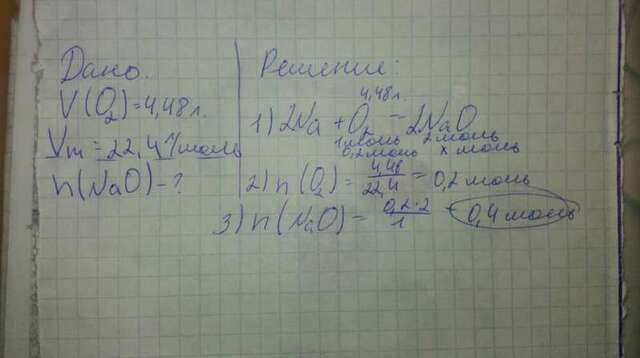 Дано.
V(O₂)=4,48 л.
Vm = 22,4 л/моль
n(NaO)-?
Решение:
4,48 л.
1) 2Na + O₂ = 2NaO
1 моль 2 моль
0,2 моль x моль
2) n(O₂) = 4,48/22,4 = 0,2 моль
3) n(NaO) = 0,2·2/1 = 0,4 моль